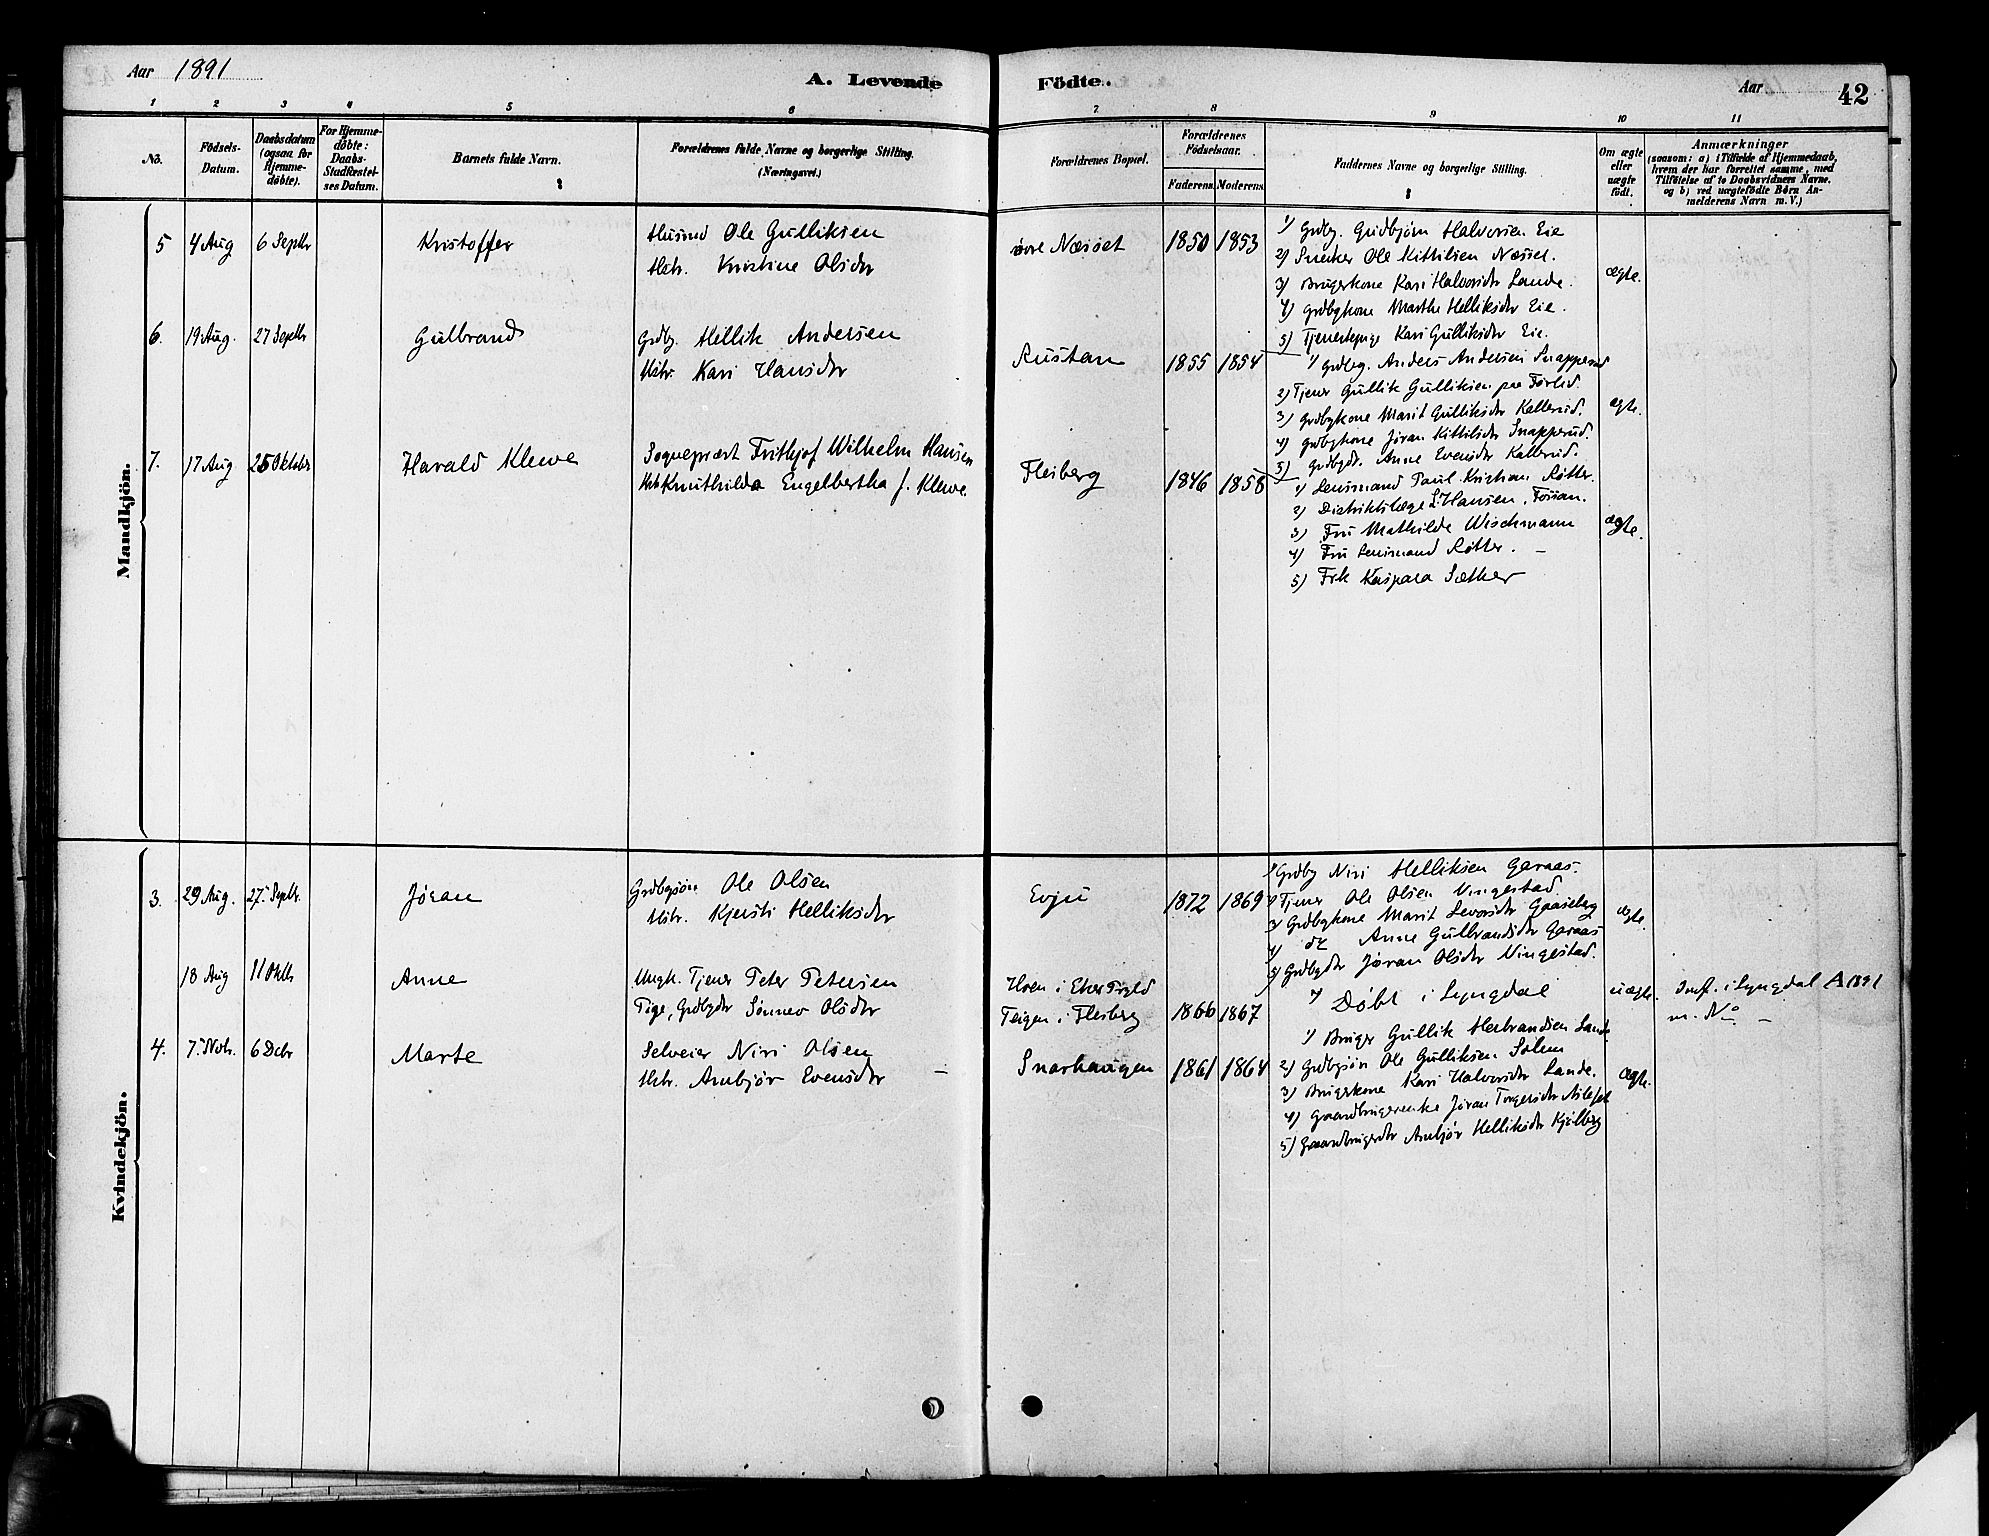 Aar 1891
A. Levende
Födte.
Aar
42
1 2 3 4 5 6 7 8 9 10 11
No.
Födsels-
Datum.
Daabsdatum
(ogsaa for
Hjemme-
döbte).
For Hjemme-
döbte:
Daabs-
Stadfæstel-
ses Datum.
Barnets fulde Navn.
Forældrenes fulde Navne og borgerlige Stilling.
(Næringsvei.)
Forældrenes Bopæl.
Forældrenes
Födselsaar.
Faderens. Moderens.
Faddernes Navne og borgerlige Stilling.
Om ægte
eller
uægte
födt.
Anmærkninger
(saasom: a) i Tilfælde af Hjemmedaab,
hvem der har forrettet samme, med
Tilföielse af to Daabsvidners Navne.
og b) ved uægtefödte Börn An-
melderens Navn m. V.)
Mandkjön.
5 4 Aug 6 Septbr Kristoffer
Husmd Ole Gulliksen
Hstr. Kristine Olsdr
Næsset 1850 1853
1) Grdbg. Gudbjørn Halvorsen Eie
2) Snecker Ole Kittilsen Næsset.
3) Brugerkone Kari Halvorsdr Lande.
4) Grdbgkone Marthe Helliksdr Eie.
5) Tjenestepige Kari Gulliksdr Eie.
ægte.
6. 19 Aug. 27 Septbr Gulbrand
Grdbg. Hellik Andersen
Hstr. Kari Hansdr
Rustan 1855 1854
1) Grdbg. Anders Andersen Snapperud
2) Tjener Gullik Gulliksen paa Førlid.
3) Grdbgkone Marit Gulliksdr Kallerud.
4) Grdbgkone Jøran Kittilsdr Snapperud.
5) Grdbgdr. Anne Evensdr Kallerud.
ægte.
7. 17 Aug 25 Oktobr Harald Klewe
Sognepræst Frithjof Wilhelm Hansen
Knuthilda Engelbertha f. Klewe.
Flesberg 1846 1858
1) Lensmand Paul Kristian Røtter.
2) Distriktslæge L. Hansen, Fossan.
3) Fru Mathilde Wischmann
4) Fru Lensmand Røtter. –
5) Frk Kaspara Sæther
ægte.
Kvindekjön.
3. 29 Aug. 27. Septbr. Jøran
Grdbgsøn Ole Olsen
Hstr. Kjersti Helliksdr
Evju 1872 1869
1) Grdbg Niri Helliksen Garaas.
2) Tjener Ole Olsen Vingestad
3) Grdbgkone Marit Levorsdr Gaaseberg
4) do Anne Gulbrandsdr Garaas
5) Grdbgdtr Jøran Olsdr Vingestad.
ægte.
18 Aug 11 Oktb Anne
Ungk. Tjener Peter Petersen
Pige, Grdbgdr Sønnev Olsdr
Hoen i Eker Prgld
Teigen i Flesberg 1866 1867
1) Døbt i Lyngdal
uægte.
Indf. i Lyngdal A 1891
m. No –
4. 7. Novbr. 6 Decbr Marte
Selveier Niri Olsen
Hstr. Ambjør Evensdr –
Snarhaugen 1861 1864
1) Bruger Gullik Herbrandsen Lande
2) Grdbgsøn Ole Gulliksen Solem
3) Brugerkone Kari Halvorsdr Lande.
4) Gaardbrugerenke Jøran Torgersdr
5) Gaardbrugerdtr Ambjør Helliksdr Kjølberg
ægte.